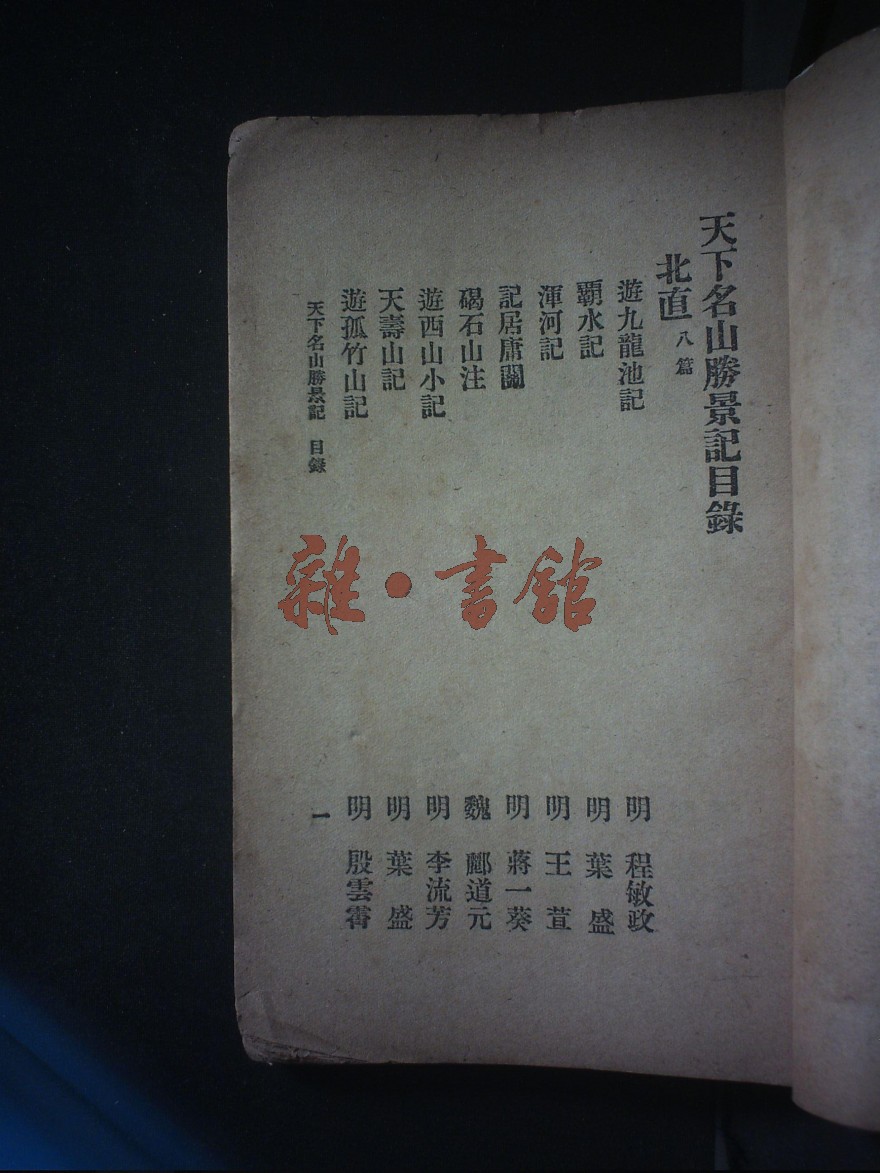 天下名山勝景記目錄
北直 八篇
遊九龍池記 明 程敏政
覇水記 明 葉盛
渾河記 明 王萱
記居庸關 明 蔣一葵
碣石山注 魏 酈道元
遊西山小記 明 李流芳
天壽山記 明 葉盛
遊孤竹山記 明 殷雲霄
天下名山勝景記 目錄 一
雜·書舘